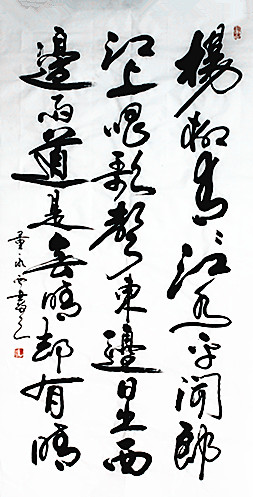 楊柳青々江水平聞郎
江上唱歌聲東邊日出西
邊雨道是無晴却有晴
董永